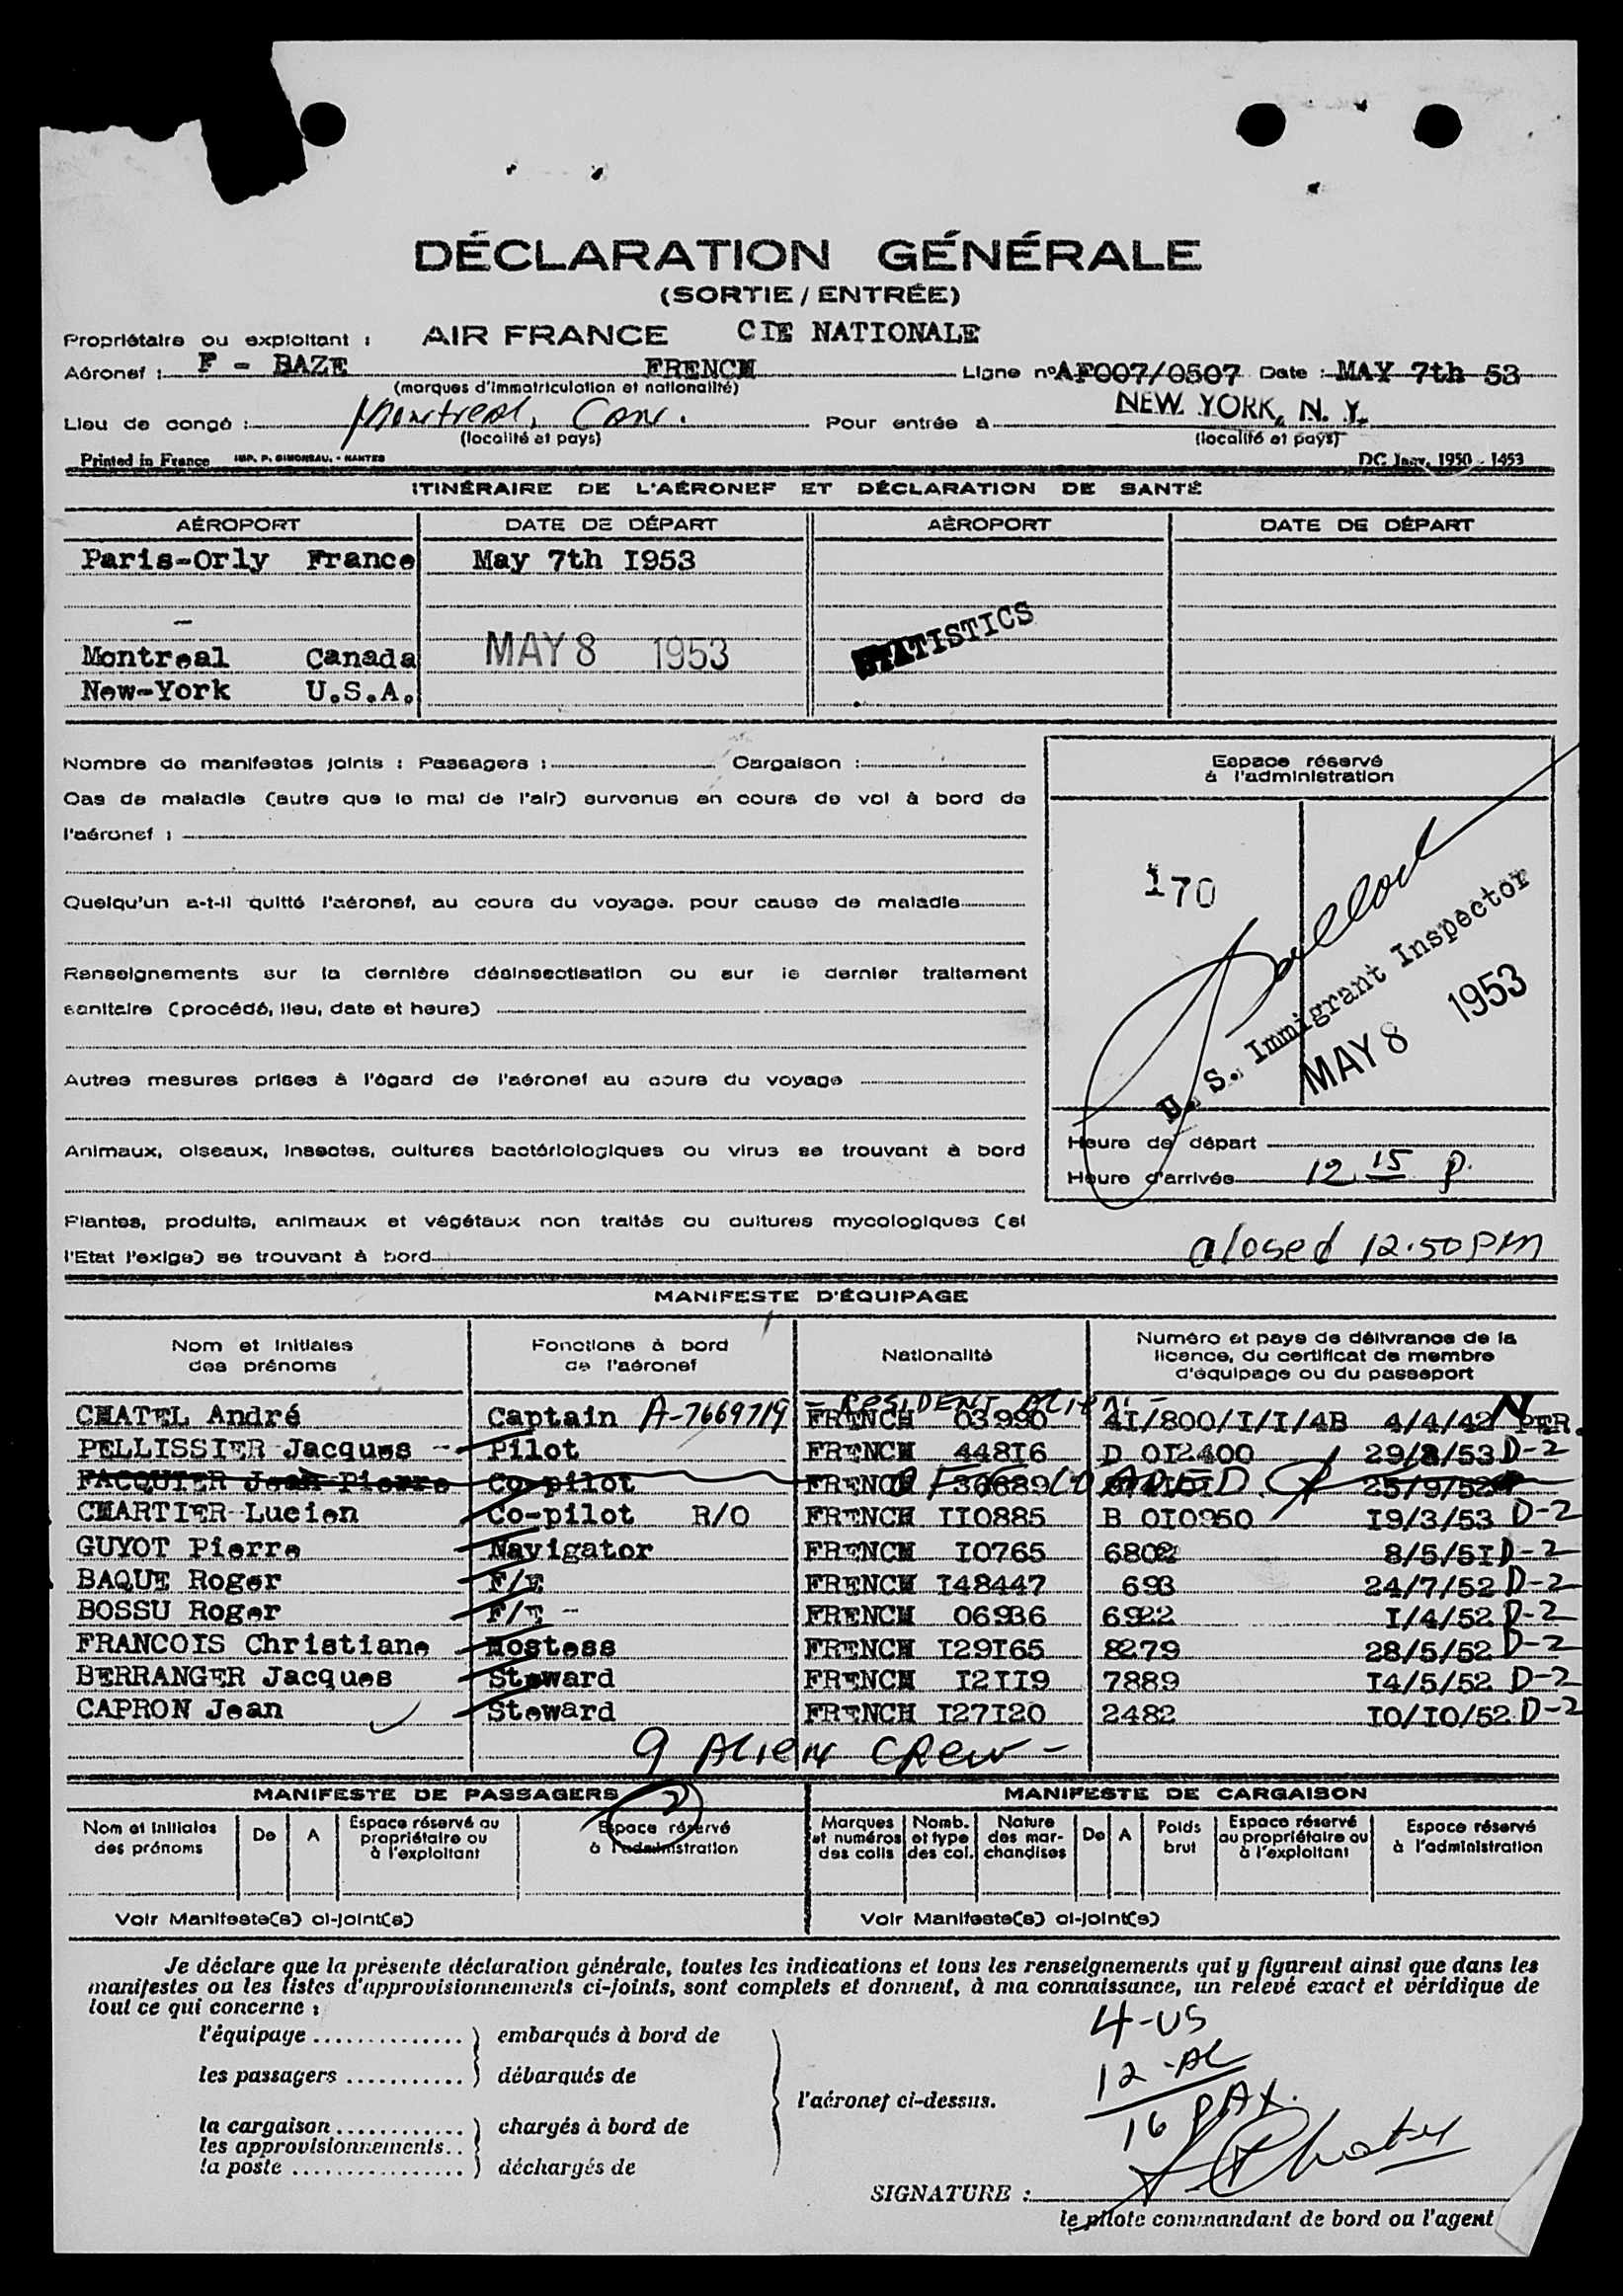 DÉCLARATION GÉNÉRALE
(SORTIE / ENTRÉE)
Propriétaire ou exploitant : AIR FRANCE CIE NATIONALE
Aéronef : F - BAZE FRENCH Ligne n° AF007/0507 Date : MAY 7th 53
(marques d'immatriculation et nationalité)
Lieu de congé : Montreal, Can. Pour entrée à NEW YORK, N. Y.
(localité et pays) (localité et pays)
Printed in France IMP. P. SIMONEAU. - NANTES DC Janv. 1950 - 1453
ITINÉRAIRE DE L'AÉRONEF ET DÉCLARATION DE SANTÉ
AÉROPORT DATE DE DÉPART AÉROPORT DATE DE DÉPART
Paris-Orly France May 7th I953
-
STATISTICS
Montreal Canada MAY 8 1953
New-York U.S.A.
Nombre de manifestes joints : Passagers : Cargaison :
Cas de maladie (autre que le mal de l'air) survenus en cours de vol à bord de
l'aéronef :
Quelqu'un a-t-il quitté l'aéronef, au cours du voyage, pour cause de maladie
Renseignements sur la dernière désinsectisation ou sur le dernier traitement
sanitaire (procédé, lieu, date et heure)
Autres mesures prises à l'égard de l'aéronef au cours du voyage
Animaux, oiseaux, insectes, cultures bactériologiques ou virus se trouvant à bord
Plantes, produits, animaux et végétaux non traités ou cultures mycologiques (si
l'Etat l'exige) se trouvant à bord
Espace réservé
à l'administration
170
U. S. Immigrant Inspector
MAY 8 1953
Heure de départ
Heure d'arrivée 12 15 P.
closed 12.50 PM
MANIFESTE D'ÉQUIPAGE
Nom et initiales des prénoms Fonctions à bord de l'aéronef Nationalité Numéro et pays de délivrance de la licence, du certificat de membre d'équipage ou du passeport
- RESIDENT ALIEN -
CHATEL André Captain A-7669719 FRENCH 03990 4I/800/I/I/4B 4/4/42 PER.
PELLISSIER Jacques - Pilot FRENCH 448I6 D 0I2400 29/8/53 D-2
FACQUIER Jean Pierre Co-pilot FRENCH 36689 OFFLOADED 25/9/52
CHARTIER Lucien Co-pilot R/O FRENCH II0885 B 0I0950 I9/3/53 D-2
GUYOT Pierre Navigator FRENCH I0765 6802 8/5/5I D-2
BAQUE Roger F/E FRENCH I48447 693 24/7/52 D-2
BOSSU Roger F/E - FRENCH 06936 6922 I/4/52 D-2
FRANCOIS Christiane Hostess FRENCH I29I65 8279 28/5/52 D-2
BERRANGER Jacques Steward FRENCH I2II9 7889 I4/5/52 D-2
CAPRON Jean Steward FRENCH I27I20 2482 I0/I0/52 D-2
9 ALIEN CREW -
MANIFESTE DE PASSAGERS MANIFESTE DE CARGAISON
2
Nom et initiales des prénoms De A Espace réservé au propriétaire ou à l'exploitant Espace réservé à l'administration Marques et numéros des colis Nomb. et type des col. Nature des marchandises De A Poids brut Espace réservé au propriétaire ou à l'exploitant Espace réservé à l'administration
Voir Manifeste(s) ci-joint(s) Voir Manifeste(s) ci-joint(s)
Je déclare que la présente déclaration générale, toutes les indications et tous les renseignements qui y figurent ainsi que dans les
manifestes ou les listes d'approvisionnements ci-joints, sont complets et donnent, à ma connaissance, un relevé exact et véridique de
tout ce qui concerne :
l'équipage .............. ) embarqués à bord de
les passagers ........... ) débarqués de
l'aéronef ci-dessus.
la cargaison ............ ) chargés à bord de
les approvisionnements..
la poste ................ ) déchargés de
4-US
12-AL
16 PAX.
SIGNATURE :
le pilote commandant de bord ou l'agent